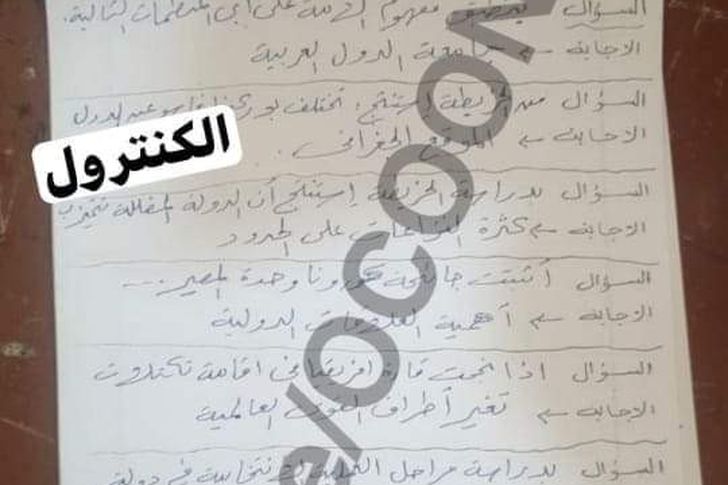 السؤال يتحقق مفهوم الأمة على أي المنظمات التالية.
الاجابة ← جامعة الدول العربية
السؤال من الخريطة إستنتج: تختلف بوركينا فاسو عن الدول
الاجابة ← الموقع الجغرافى.
الكنترول
السؤال بدراسة الخريطة إستنتج أن الدولة المظللة تتميز بـ
الاجابة ← كثرة النزاعات على الحدود
السؤال أثبتت جائحة كورونا وحدة المصير....
الاجابة ← أهمية العلاقات الدولية
السؤال اذا نجحت قارة افريقيا فى اقامة تكتلات
الاجابة ← تغير أطراف القوى العالمية
السؤال بدراسة مراحل العملية الانتخابية في دولة
e/OCOON